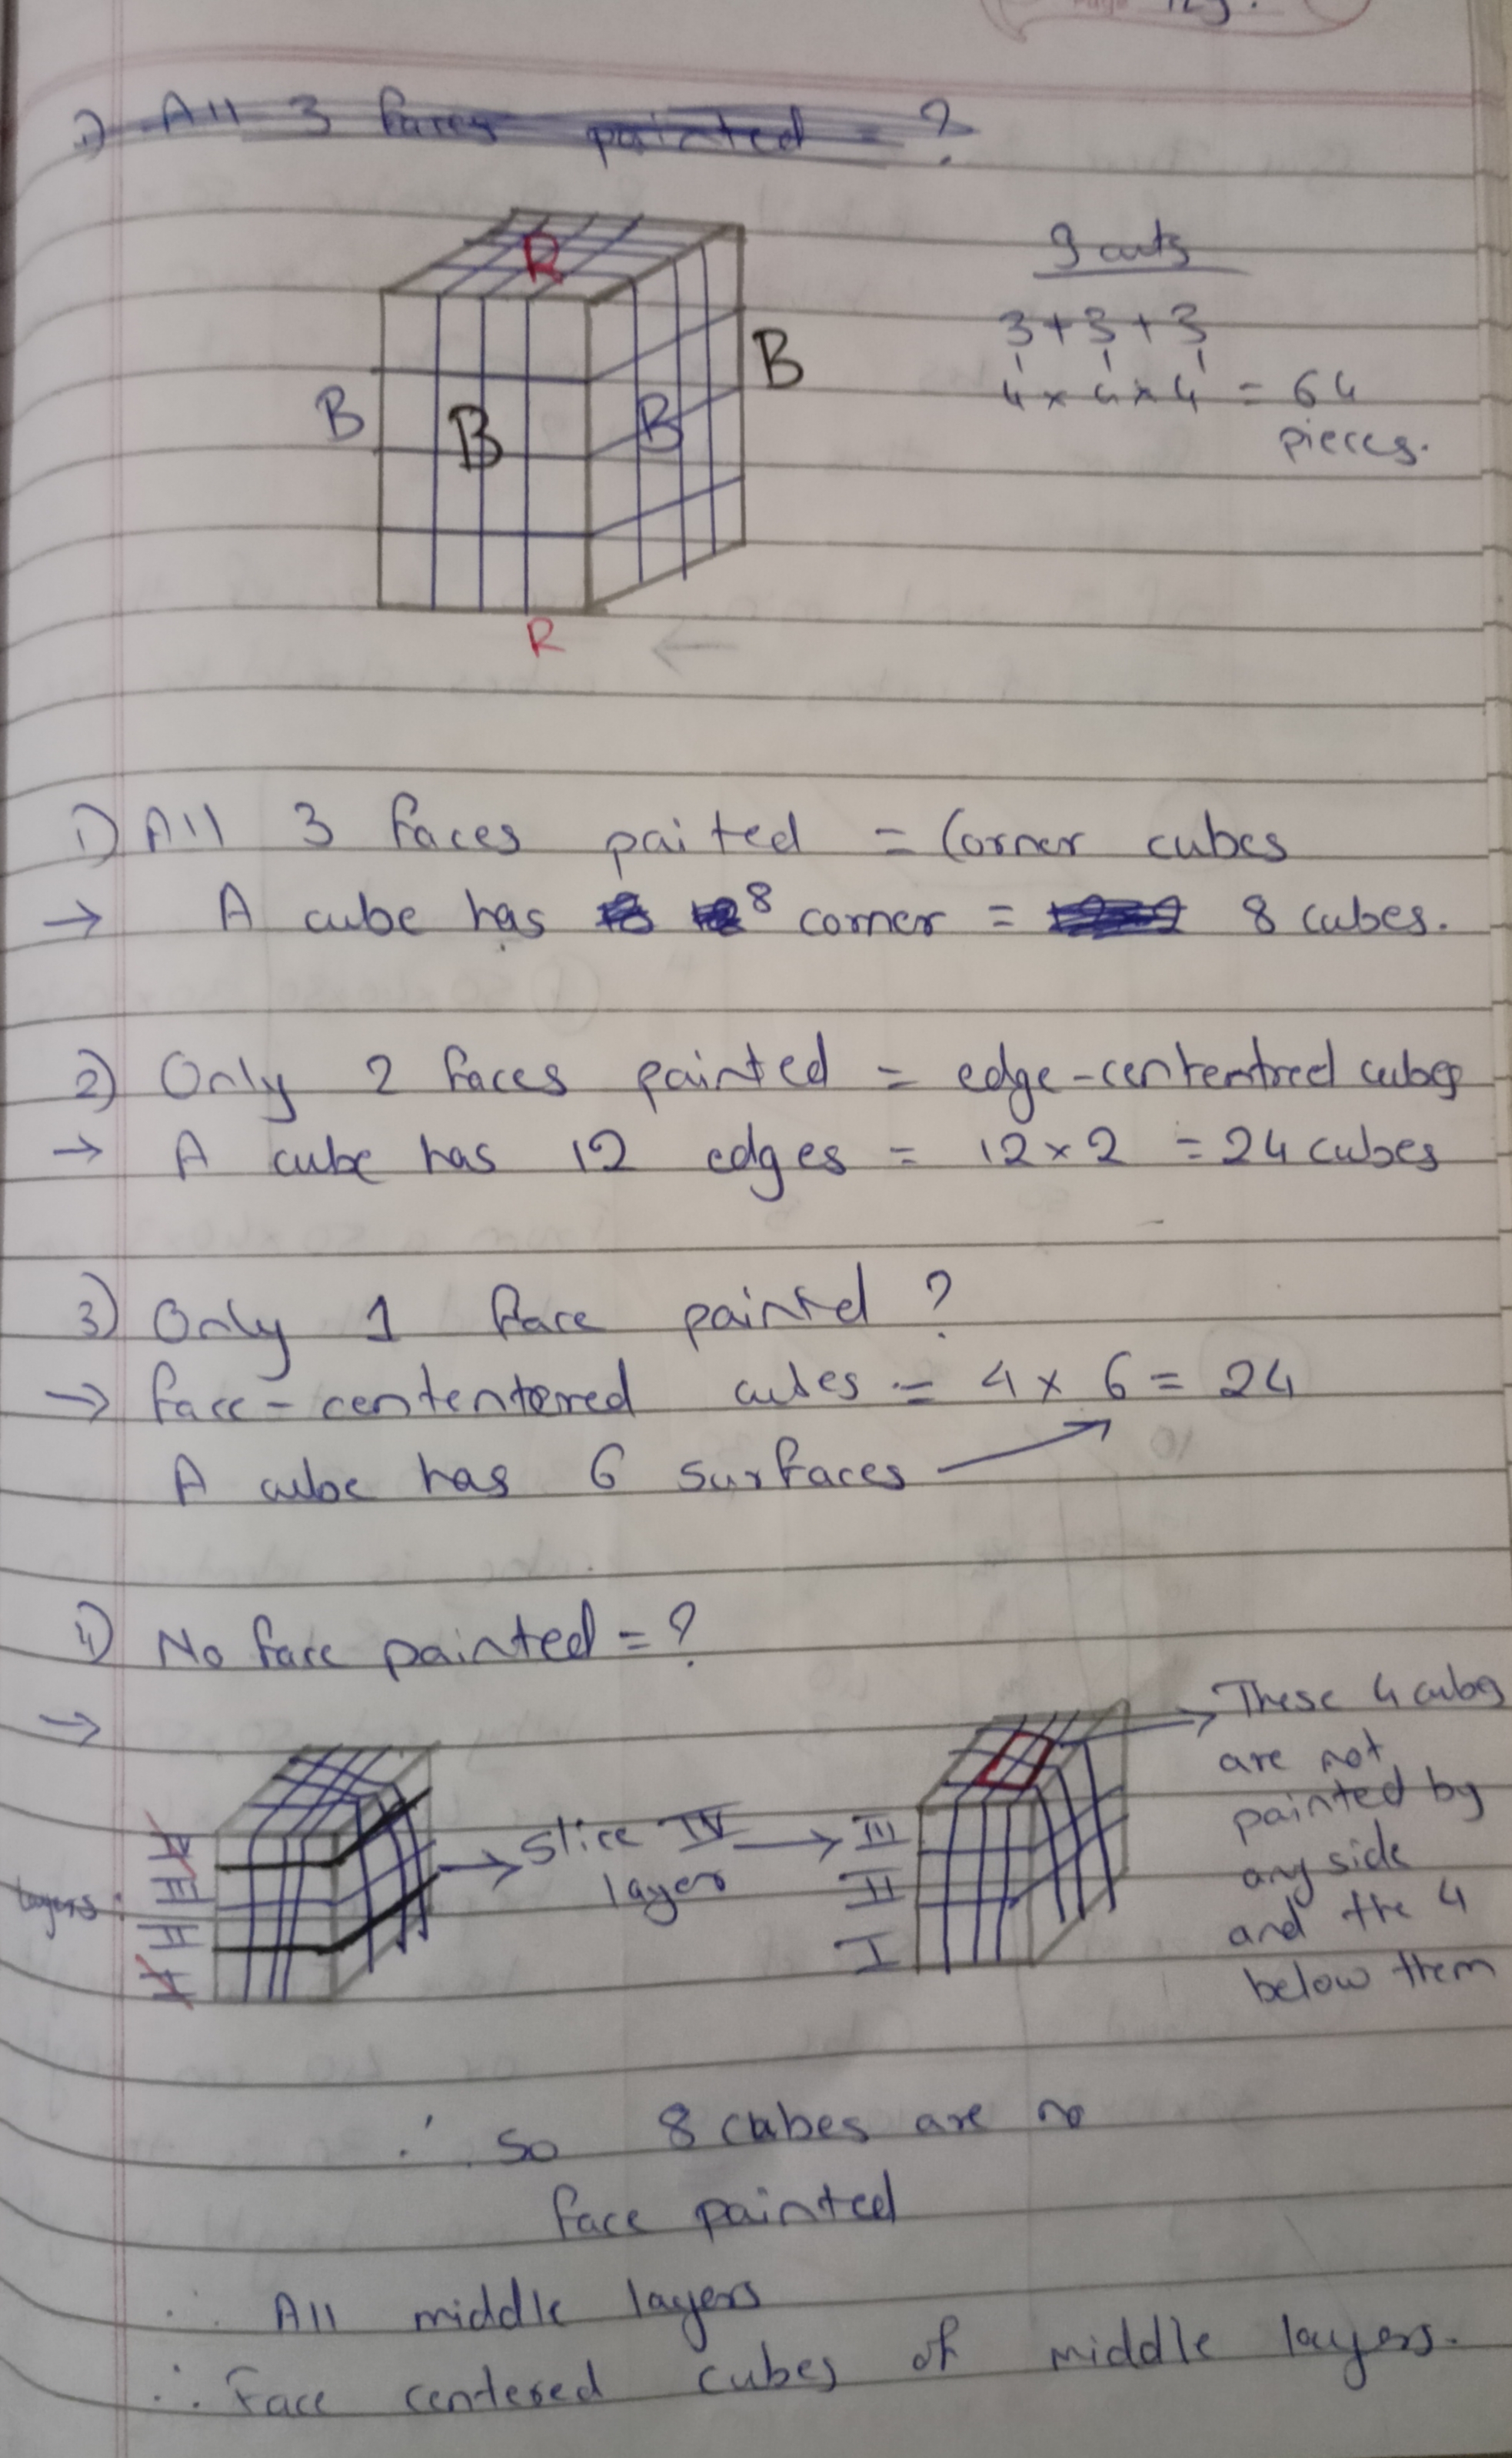 Page 129.
1) All 3 faces painted = ?
R
B
B
B
B
R
9 cuts
3+3+3
4 x 4 x 4 = 64
pieces.
1) All 3 faces paited = Corner cubes
→ A cube has 8 corner = 8 cubes.
2) Only 2 faces painted = edge-centented cubes
→ A cube has 12 edges = 12 x 2 = 24 cubes
3) Only 1 face painted ?
→ face-centented cubes = 4 x 6 = 24
A cube has 6 surfaces
4) No face painted = ?
→
layers:
IV
III
II
I
→ slice IV →
layer
III
II
I
→ These 4 cubes
are not
painted by
any side
and the 4
below them
∴ so 8 cubes are no
face painted
∴ All middle layers
∴ Face centered cubes of middle layers.